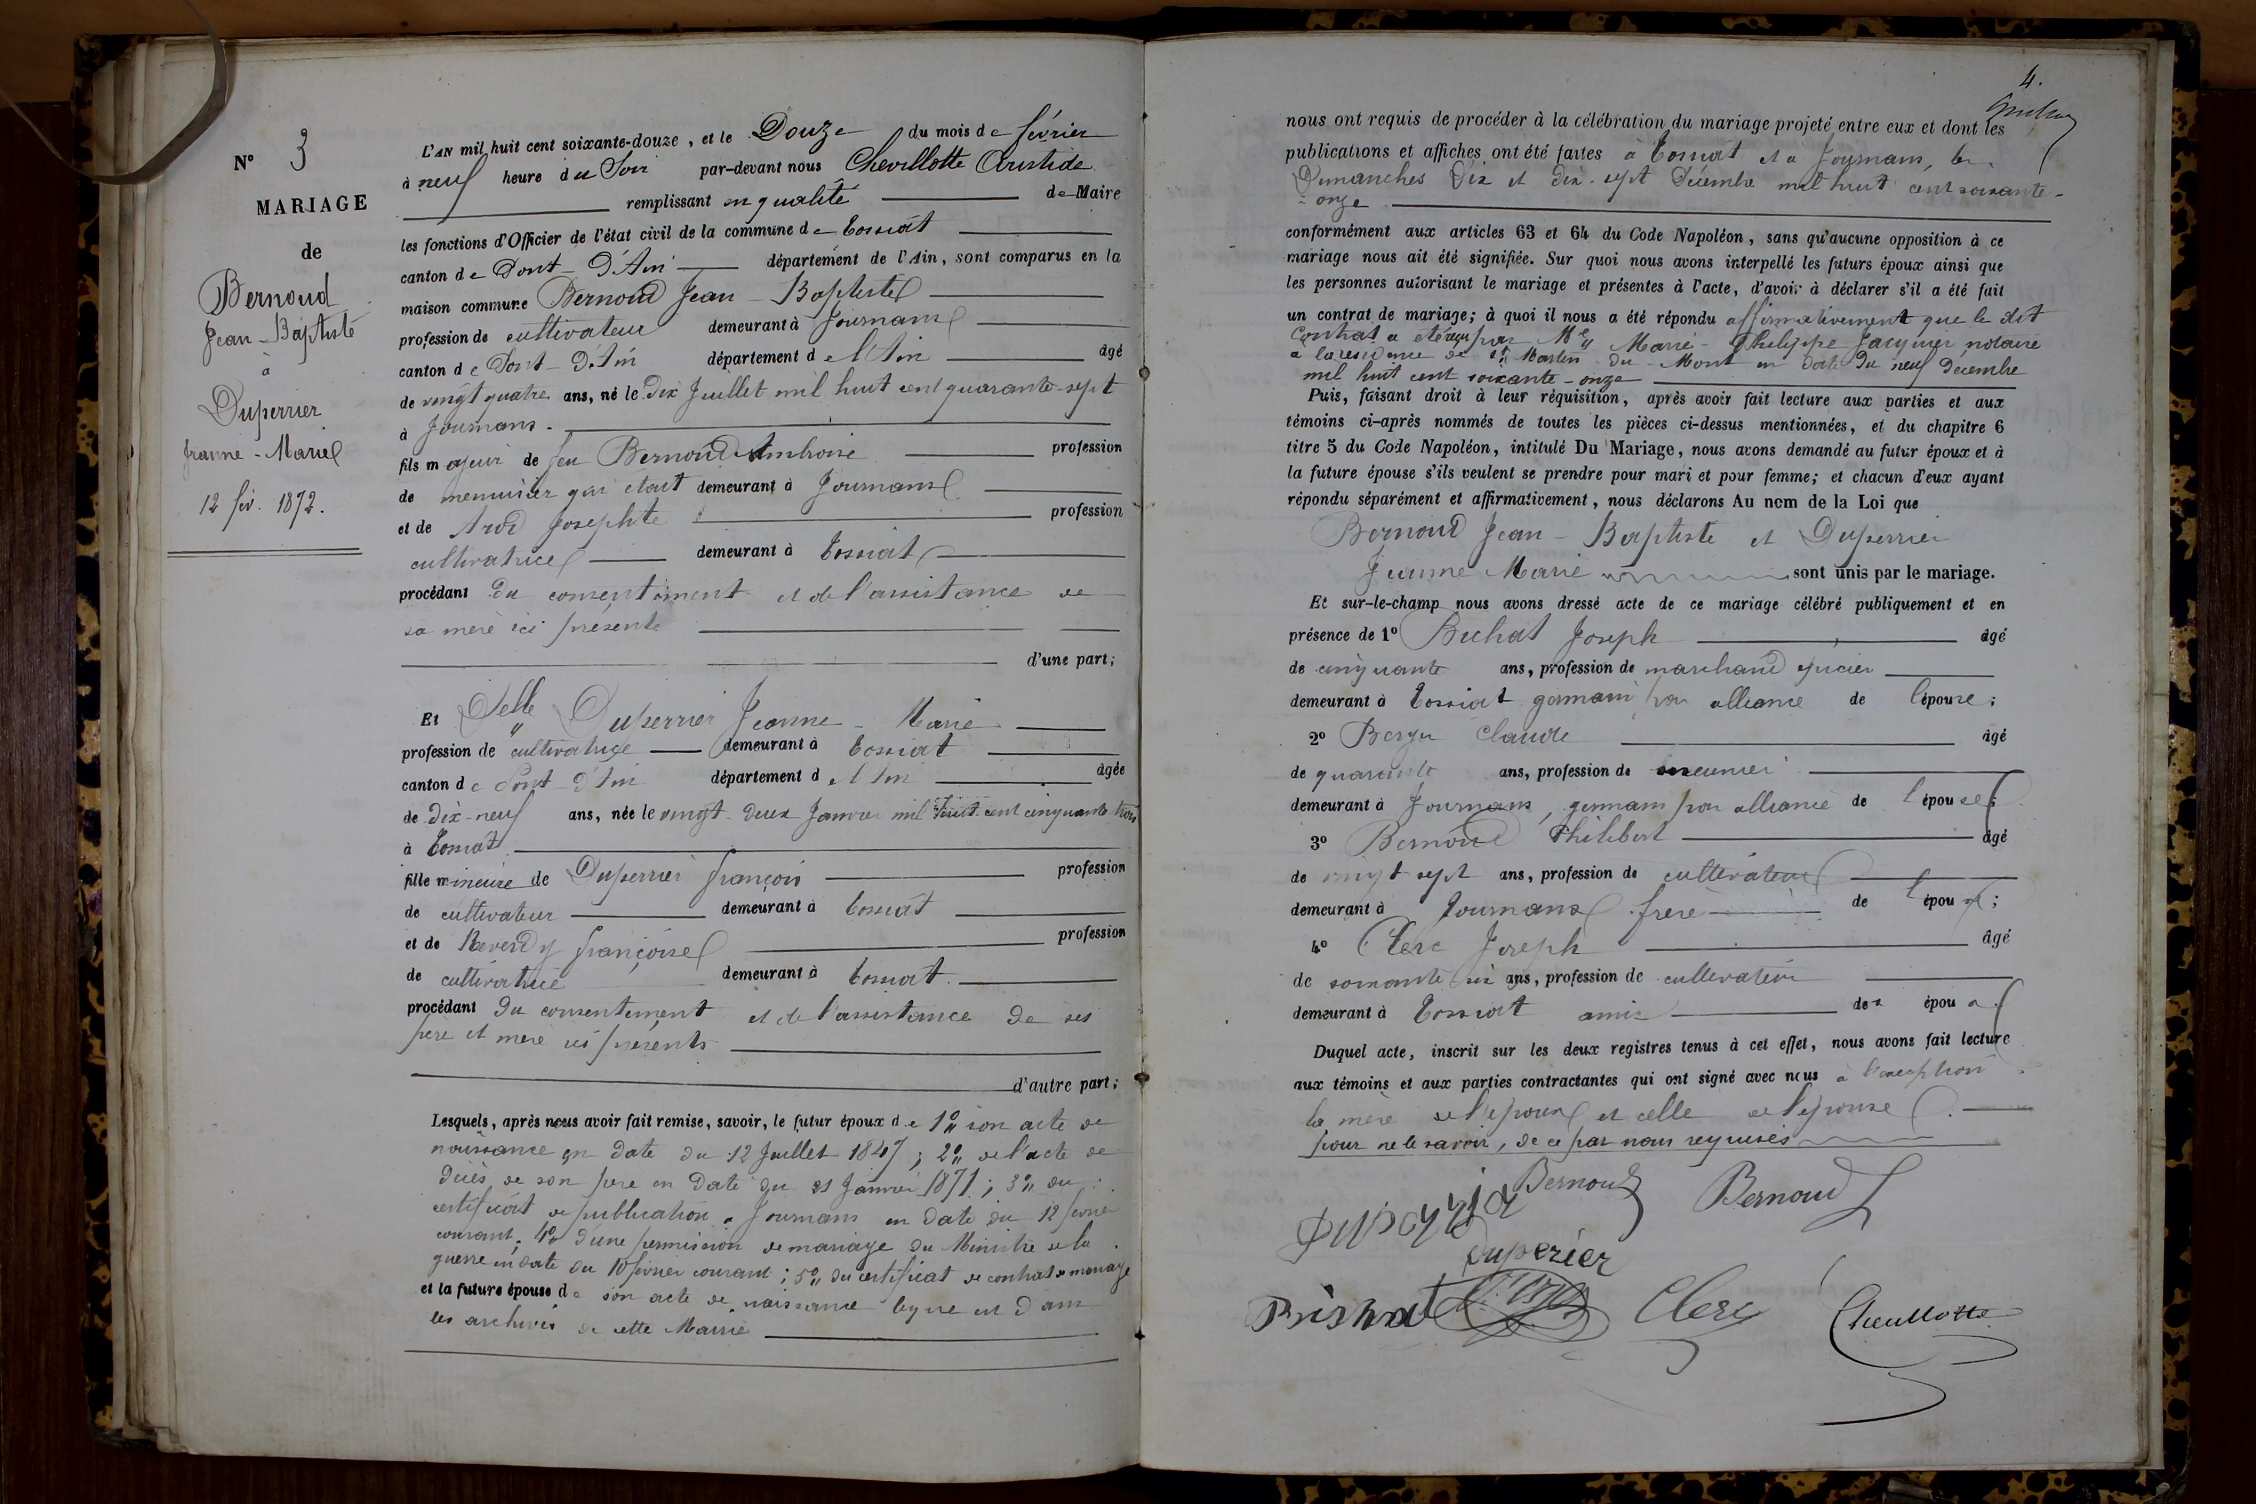 N° 3
MARIAGE
de
Bernoud
Jean-Baptiste
à
Duperrier
Jeanne-Marie
12 fév. 1872.
L'AN mil huit cent soixante-douze, et le Douze du mois de février
à neuf heure du Soir par-devant nous Chevillotte Aristide
remplissant en qualité de Maire
les fonctions d'Officier de l'état civil de la commune de Tossiat
canton de Pont-D'Ain département de l'Ain, sont comparus en la
maison commune Bernoud Jean-Baptiste
profession de cultivateur demeurant à Journans
canton de Pont-D'Ain département de l'Ain âgé
de vingt quatre ans, né le Dix Juillet mil huit cent quarante-sept
à Journans.
fils majeur de feu Bernoud Ambroise profession
de menuisier qui etait demeurant à Journans
et de Josephte profession
cultivatrice demeurant à Tossiat
procédant du consentement et de l'assistance de
sa mère ici présente
d'une part;
Et Delle Duperrier Jeanne-Marie
profession de cultivatrice demeurant à Tossiat
canton de Pont-D'Ain département de l'Ain âgée
de dix-neuf ans, née le vingt-deux Janvier mil huit cent cinquante trois
à Tossiat
fille mineure de Duperrier françois profession
de cultivateur demeurant à Tossiat
et de Reverdy françoise profession
de cultivatrice demeurant à Tossiat.
procédant du consentement et de l'assistance de ses
père et mère ici présents
d'autre part;
Lesquels, après nous avoir fait remise, savoir, le futur époux de 1° son acte de
naissance en date du 12 Juillet 1847; 2° de l'acte de
décès de son père en date du 21 Janvier 1871; 3° du
certificat de publication à Journans en date du 12 février
courant; 4° d'une permission de mariage du Ministre de la
guerre en date du 10 février courant; 5° du certificat de contrat de mariage
et la future épouse de son acte de naissance lequel est dans
les archives de cette Mairie
4.
nous ont requis de procéder à la célébration du mariage projeté entre eux et dont les
publications et affiches ont été faites à Tossiat et à Journans, les
Dimanches Dix et dix-sept Décembre mil huit cent soixante-
onze
conformément aux articles 63 et 64 du Code Napoléon, sans qu'aucune opposition à ce
mariage nous ait été signifiée. Sur quoi nous avons interpellé les futurs époux ainsi que
les personnes autorisant le mariage et présentes à l'acte, d'avoir à déclarer s'il a été fait
un contrat de mariage; à quoi il nous a été répondu affirmativement que le dit
contrat a été reçu par Me Marie-Philippe Jacquier notaire
à la residence de St Martin-du-Mont en date du neuf décembre
mil huit cent soixante-onze
Puis, faisant droit à leur réquisition, après avoir fait lecture aux parties et aux
témoins ci-après nommés de toutes les pièces ci-dessus mentionnées, et du chapitre 6
titre 5 du Code Napoléon, intitulé Du Mariage, nous avons demandé au futur époux et à
la future épouse s'ils veulent se prendre pour mari et pour femme; et chacun d'eux ayant
répondu séparément et affirmativement, nous déclarons Au nom de la Loi que
Bernoud Jean-Baptiste et Duperrier
Jeanne Marie sont unis par le mariage.
Et sur-le-champ nous avons dressé acte de ce mariage célébré publiquement et en
présence de 1° Bichat Joseph âgé
de cinquante ans, profession de marchand épicier
demeurant à Tossiat germain par alliance de l'épouse;
2° Claude âgé
de quarante ans, profession de meunier
demeurant à Journans, germain par alliance de l'épouse;
3° Bernoud Philibert âgé
de vingt sept ans, profession de cultivateur
demeurant à Journans frère de l'époux;
4° Clerc Joseph âgé
de soixante six ans, profession de cultivateur
demeurant à Tossiat amis des époux.
Duquel acte, inscrit sur les deux registres tenus à cet effet, nous avons fait lecture
aux témoins et aux parties contractantes qui ont signé avec nous à l'exception
la mère de l'époux et celle de l'épouse
pour ne le savoir, de ce par nous requises
Bernoud Bernoud
Duperier
Clerc Chevillotte